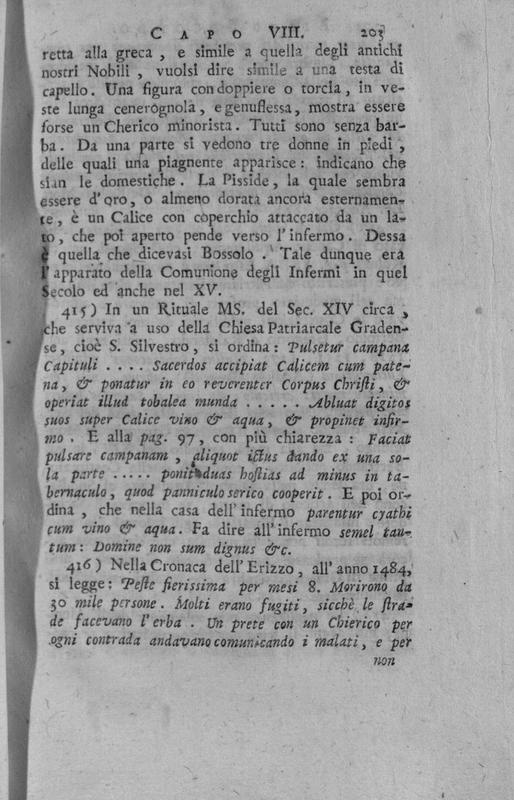 CAPO VIII. 203
retta alla greca, e simile a quella degli antichi
nostri Nobili, vuolsi dire simile a una testa di
capello. Una figura con doppiere o torcia, in ve-
ste lunga cenerognola, e genuflessa, mostra essere
forse un Cherico minorista. Tutti sono senza bar-
ba. Da una parte si vedono tre donne in piedi,
delle quali una piagnente apparisce: indicano che
sian le domestiche. La Pisside, la quale sembra
essere d'oro, o almeno dorata ancora esternamen-
te, è un Calice con coperchio attaccato da un la-
to, che poi aperto pende verso l'infermo. Dessa
è quella che dicevasi Bossolo. Tale dunque era
l'apparato della Comunione degli Infermi in quel
Secolo ed anche nel XV.
415) In un Rituale MS. del Sec. XIV circa,
che serviva a uso della Chiesa Patriarcale Graden-
se, cioè S. Silvestro, si ordina: Pulsetur campana
Capituli .... Sacerdos accipiat Calicem cum pate-
na, & ponatur in eo reverenter Corpus Chriſti, &
operiat illud tobalea munda ..... Abluat digitos
suos super Calice vino & aqua, & propinet infir-
mo. E alla pag. 97, con più chiarezza: Faciat
pulsare campanam, aliquot ictus dando ex una so-
la parte ..... ponit duas hoſtias ad minus in ta-
bernaculo, quod panniculo serico cooperit. E poi or-
dina, che nella casa dell'infermo parentur cyathi
cum vino & aqua. Fa dire all'infermo semel tan-
tum: Domine non sum dignus &c.
416) Nella Cronaca dell'Erizzo, all'anno 1484,
si legge: Peſte fierissima per mesi 8. Morirono da
30 mile persone. Molti erano fugiti, sicchè le ſtra-
de facevano l'erba. Un prete con un Chierico per
ogni contrada andavano comunicando i malati, e per
non